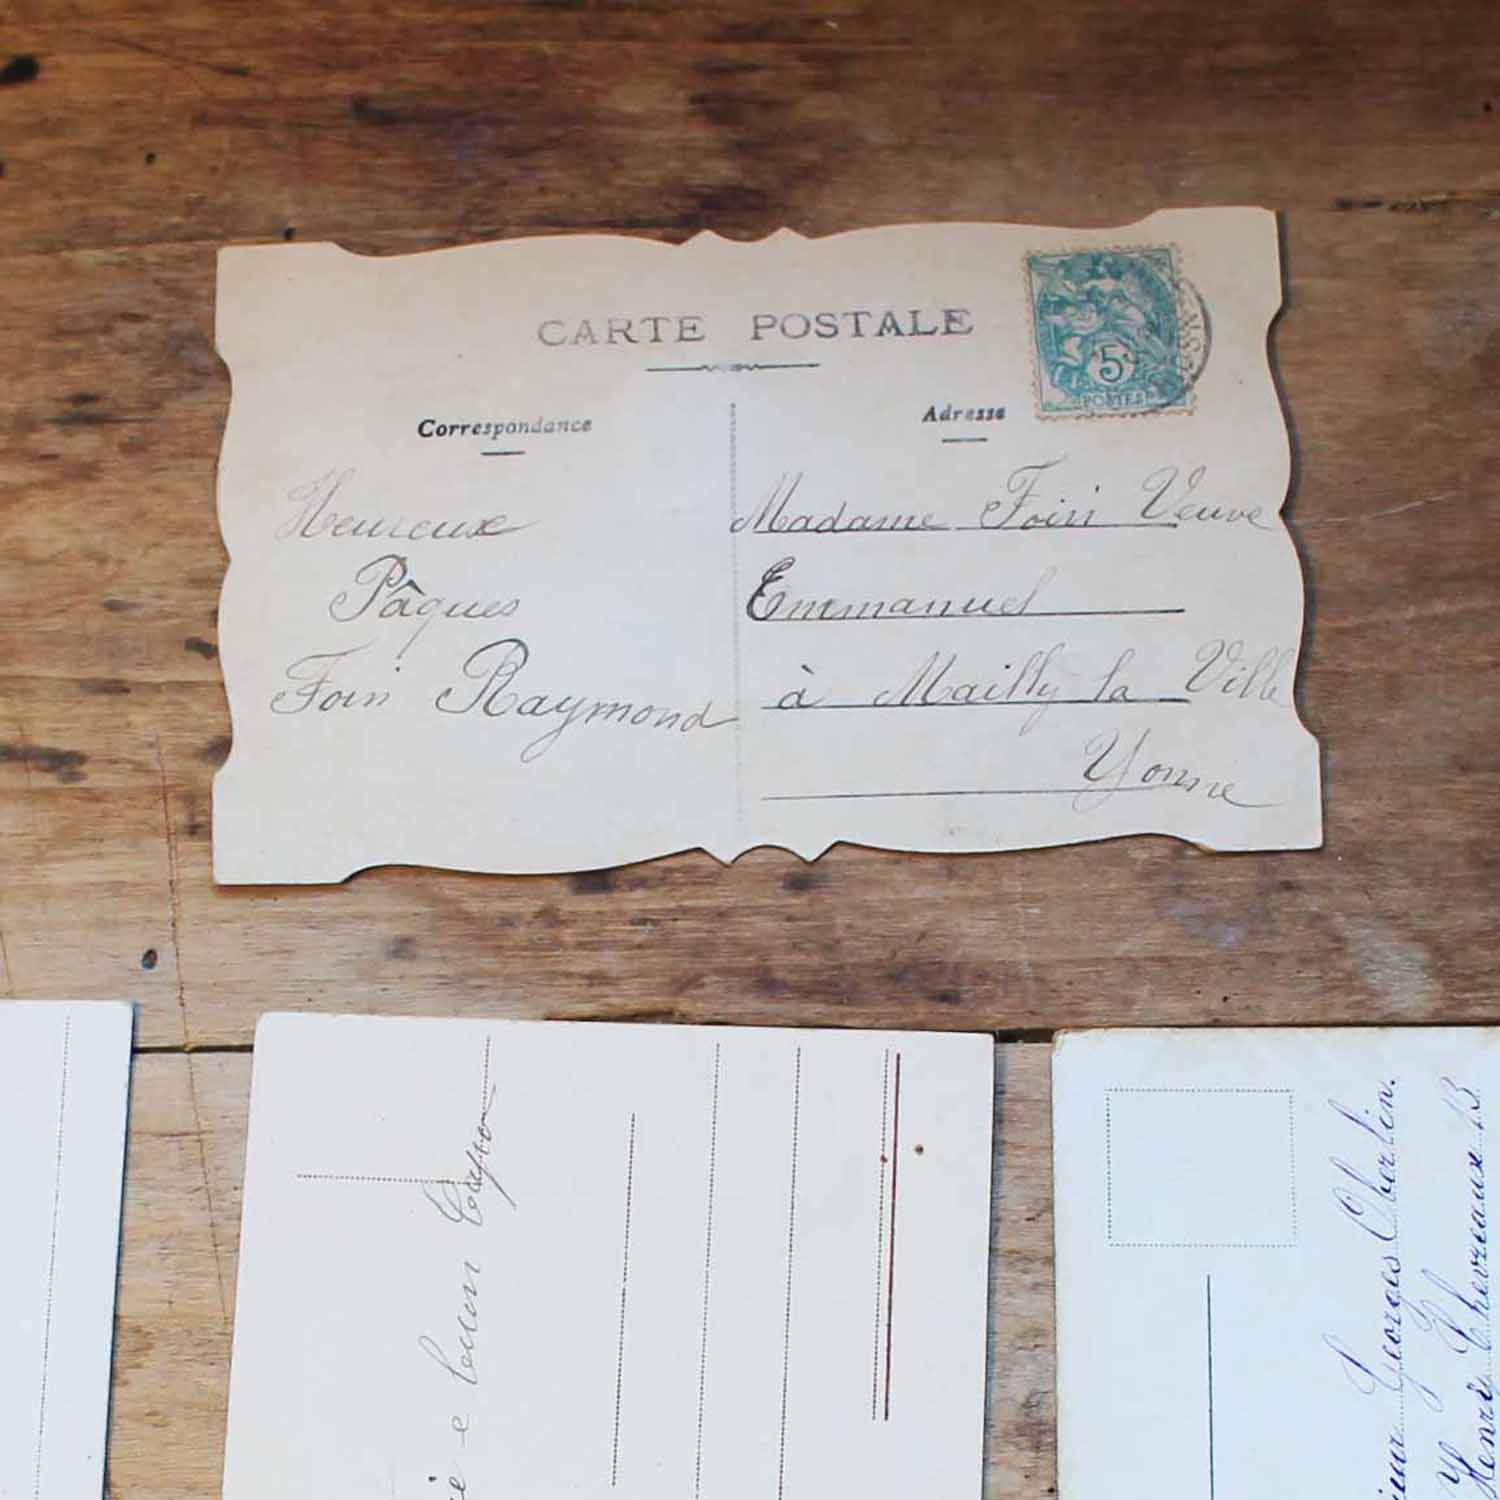 CARTE POSTALE
5c
POSTES
Correspondance
Adresse
Heureuse
Pâques
Foin Raymond
Madame Foin Veuve
Emmanuel
à Mailly la Ville
Yonne
Georges Oberlin.
Henri Chevreaux 13